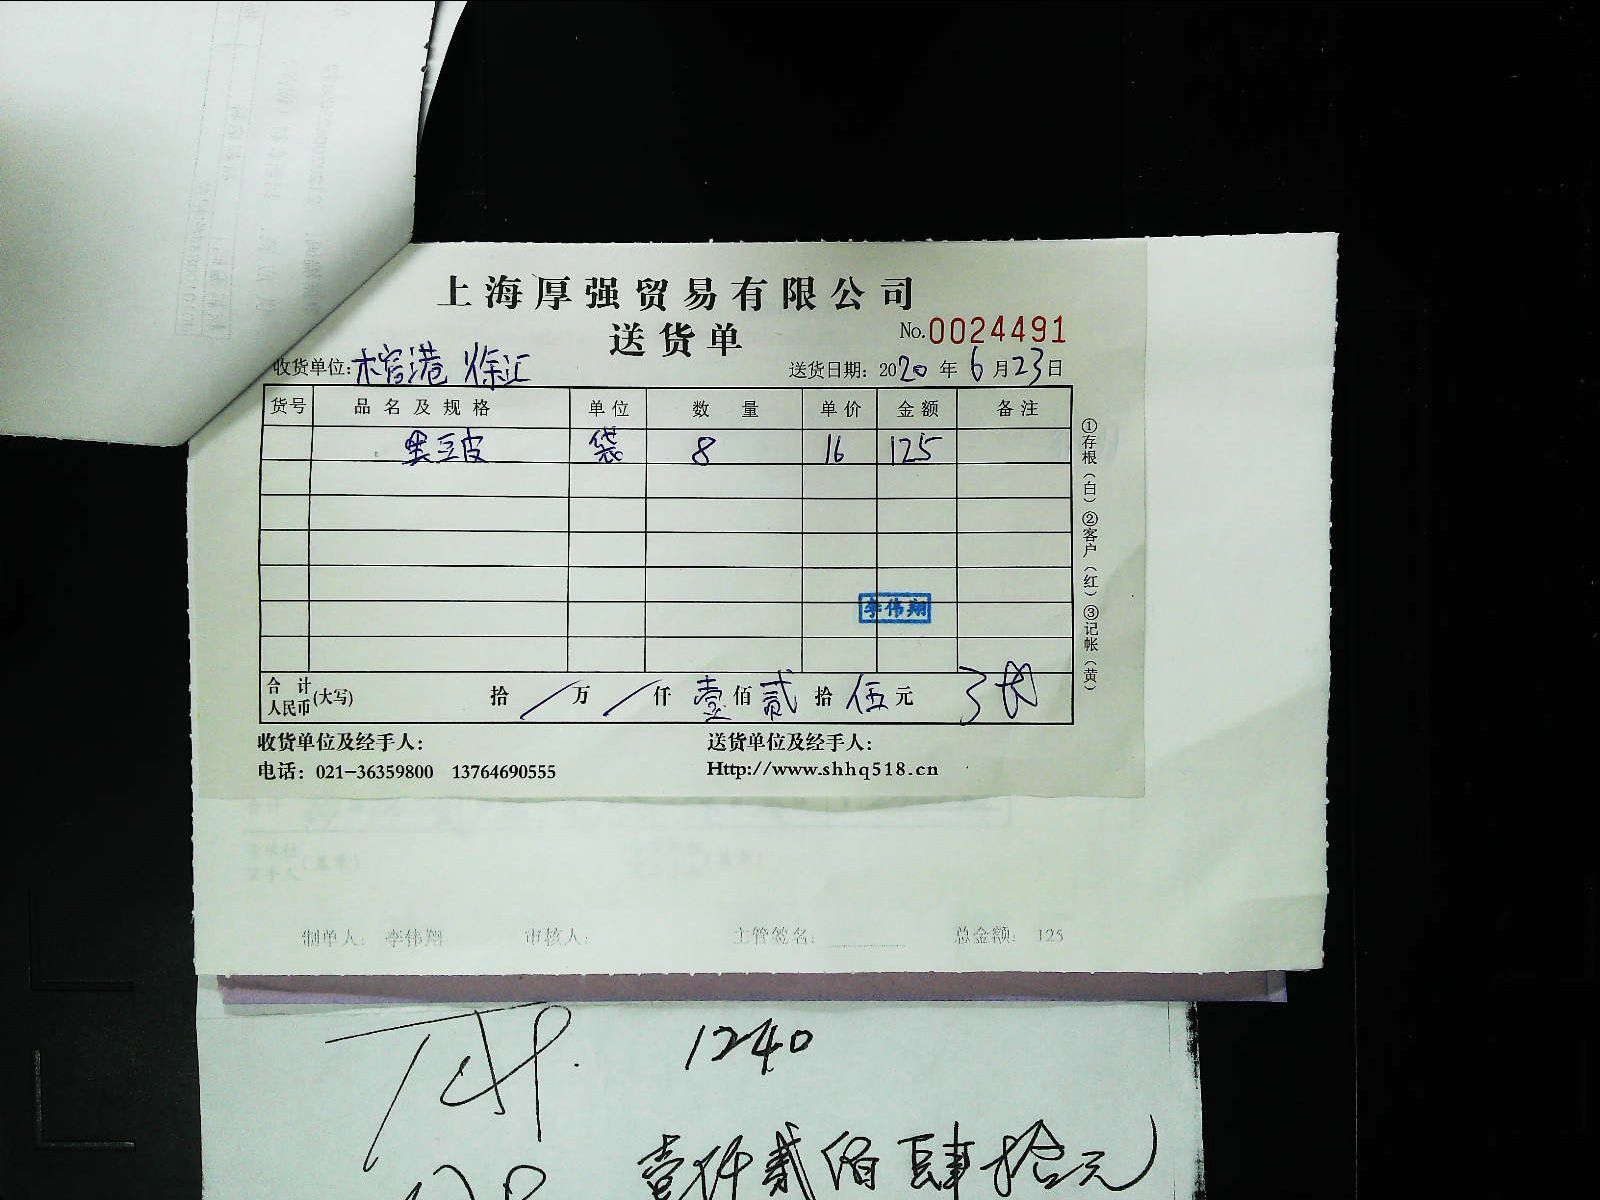 上海厚强贸易有限公司
送货单
No.0024491
收货单位: 徐汇
送货日期: 2020年6月23日
货号 品名及规格 单位 数量 单价 金额 备注
黑豆皮 袋 8 16 125
李伟翔
合计人民币(大写) 拾/万/仟壹佰贰拾伍元
①存根(白)②客户(红)③记帐(黄)
收货单位及经手人: 送货单位及经手人:
电话: 021-36359800 13764690555 Http://www.shhq518.cn
制单人: 李伟翔 审核人: 主管签名: 总金额: 125
1240
壹仟贰佰肆拾元